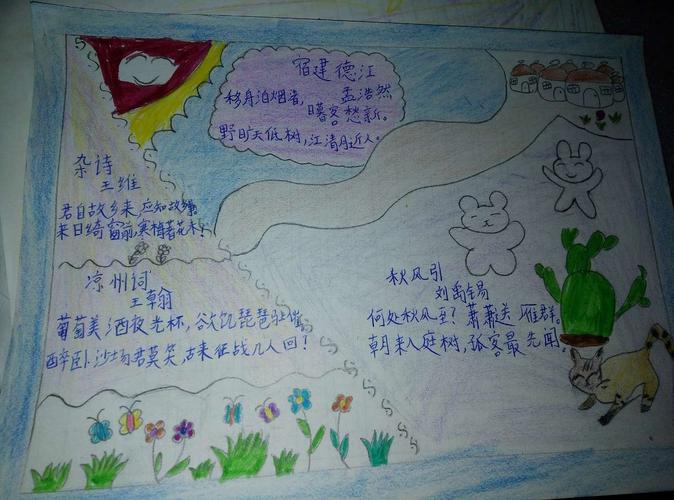 宿建德江
移舟泊烟渚, 孟浩然
日暮客愁新。
野旷天低树,江清月近人。
杂诗
王维
君自故乡来,应知故
来日绮窗前,寒梅著花未!
凉州词
王翰
葡萄美酒夜光杯,欲饮琵琶马上催
醉卧沙场君莫笑,古来征战几人回!
秋风引
刘禹锡
何处秋风至?萧萧送雁群。
朝来入庭树,孤客最先闻。